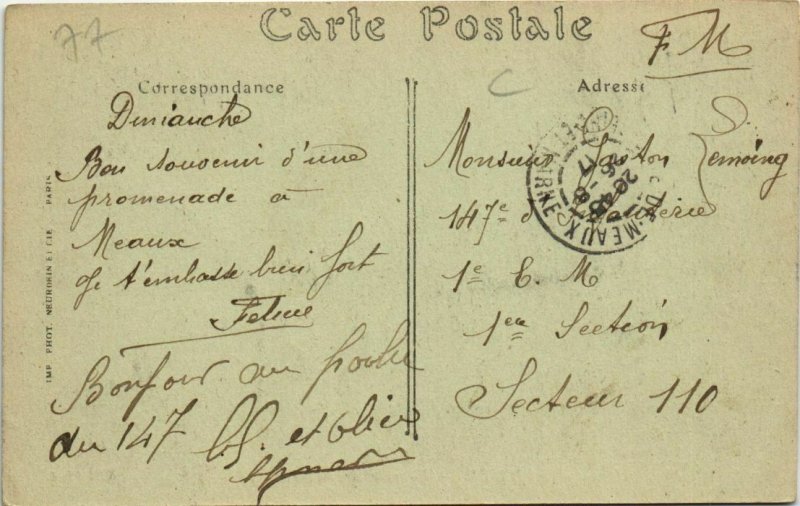 77
Carte Postale
F M
Correspondance
Dimanche
Bon souvenir d'une
promenade à
Meaux
Je t'embrasse bien fort
Bonjour au poilu
du 147 et
IMP. PHOT. NEURDEIN ET CIE. PARIS
Adresse
Monsieur Gaston Lemoing
147e d'Infanterie
1e C. M
1ere Section
Secteur 110
DE MEAUX
20 45